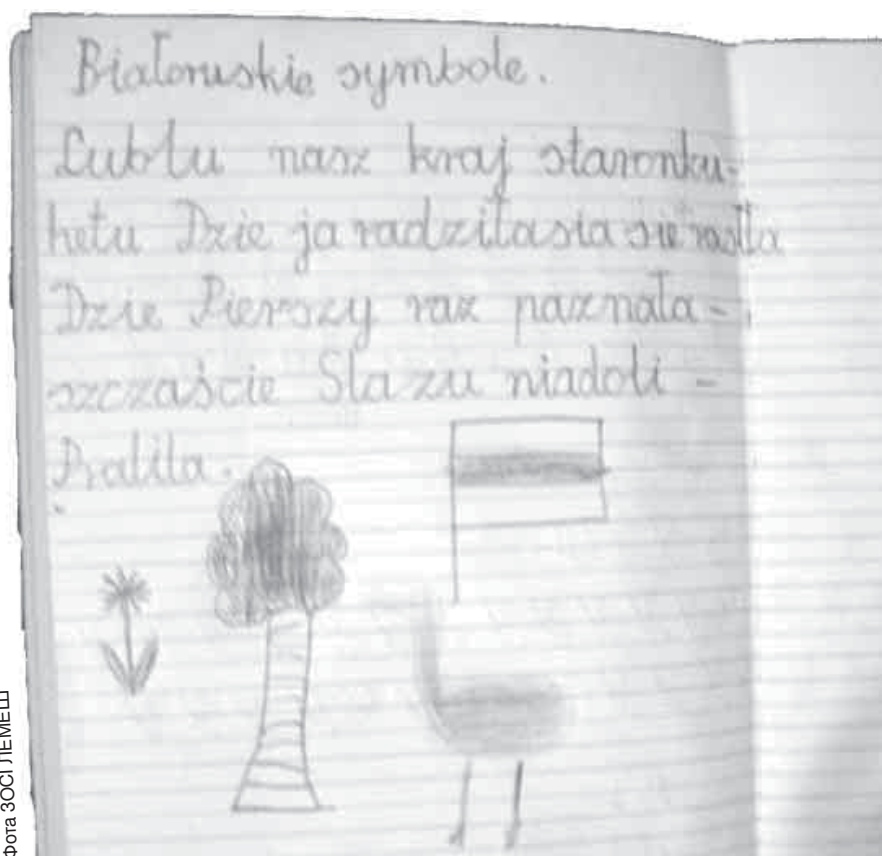 Białoruskie symbole.
Lubłu nasz kraj staronku-
hetu Dzie ja radziłasia
Dzie Pierszy raz paznała -
szczaście Slazu niadoli -
Pralila.
Фота ЗОСІ ЛЕМЕШ